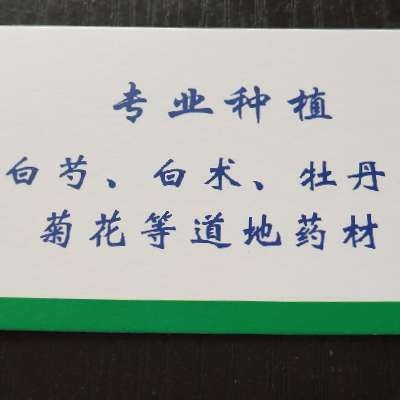 专业种植
白芍、白术、牡丹
菊花等道地药材